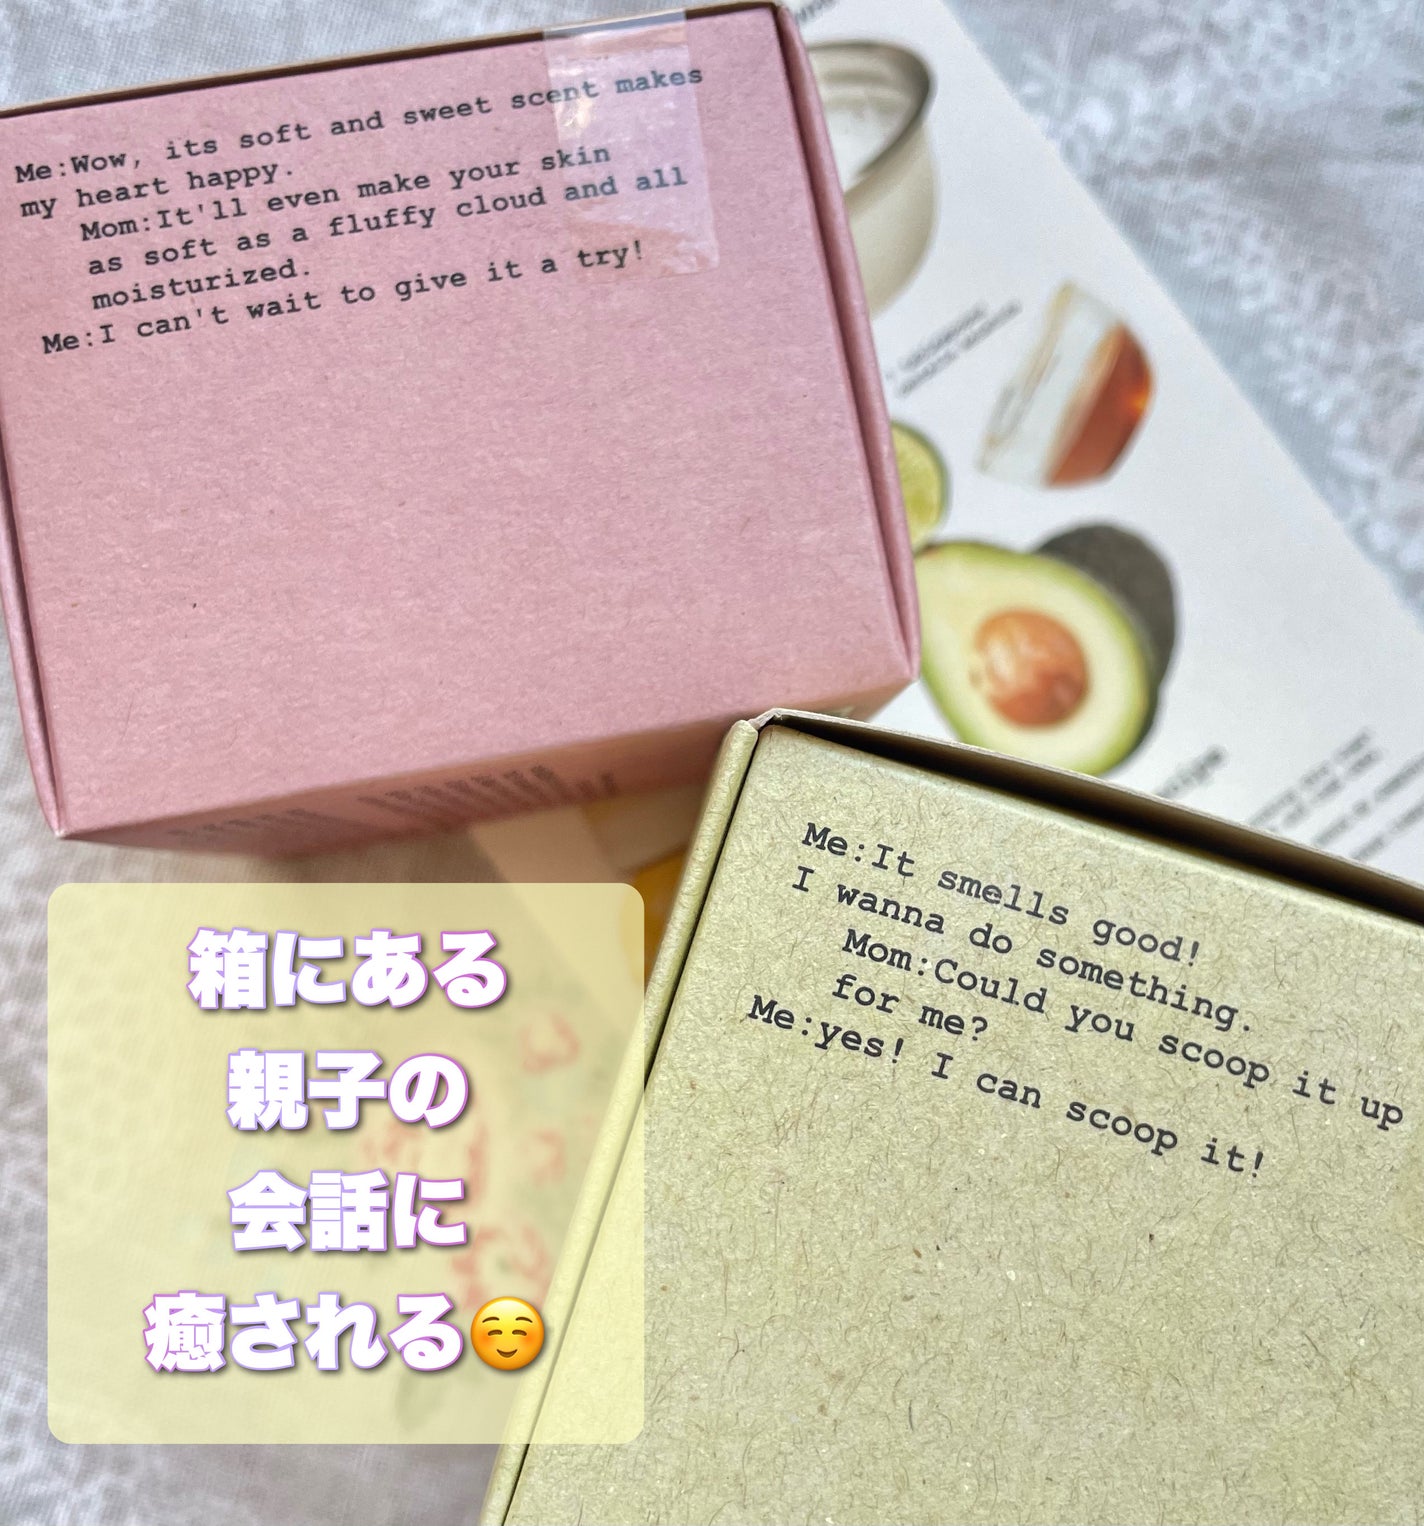 Me:Wow, its soft and sweet scent makes
my heart happy.
Mom:It'll even make your skin
as soft as a fluffy cloud and all
moisturized.
Me:I can't wait to give it a try!
Me:It smells good!
I wanna do something.
Mom:Could you scoop it up
for me?
Me:yes! I can scoop it!
箱にある
親子の
会話に
癒される☺️